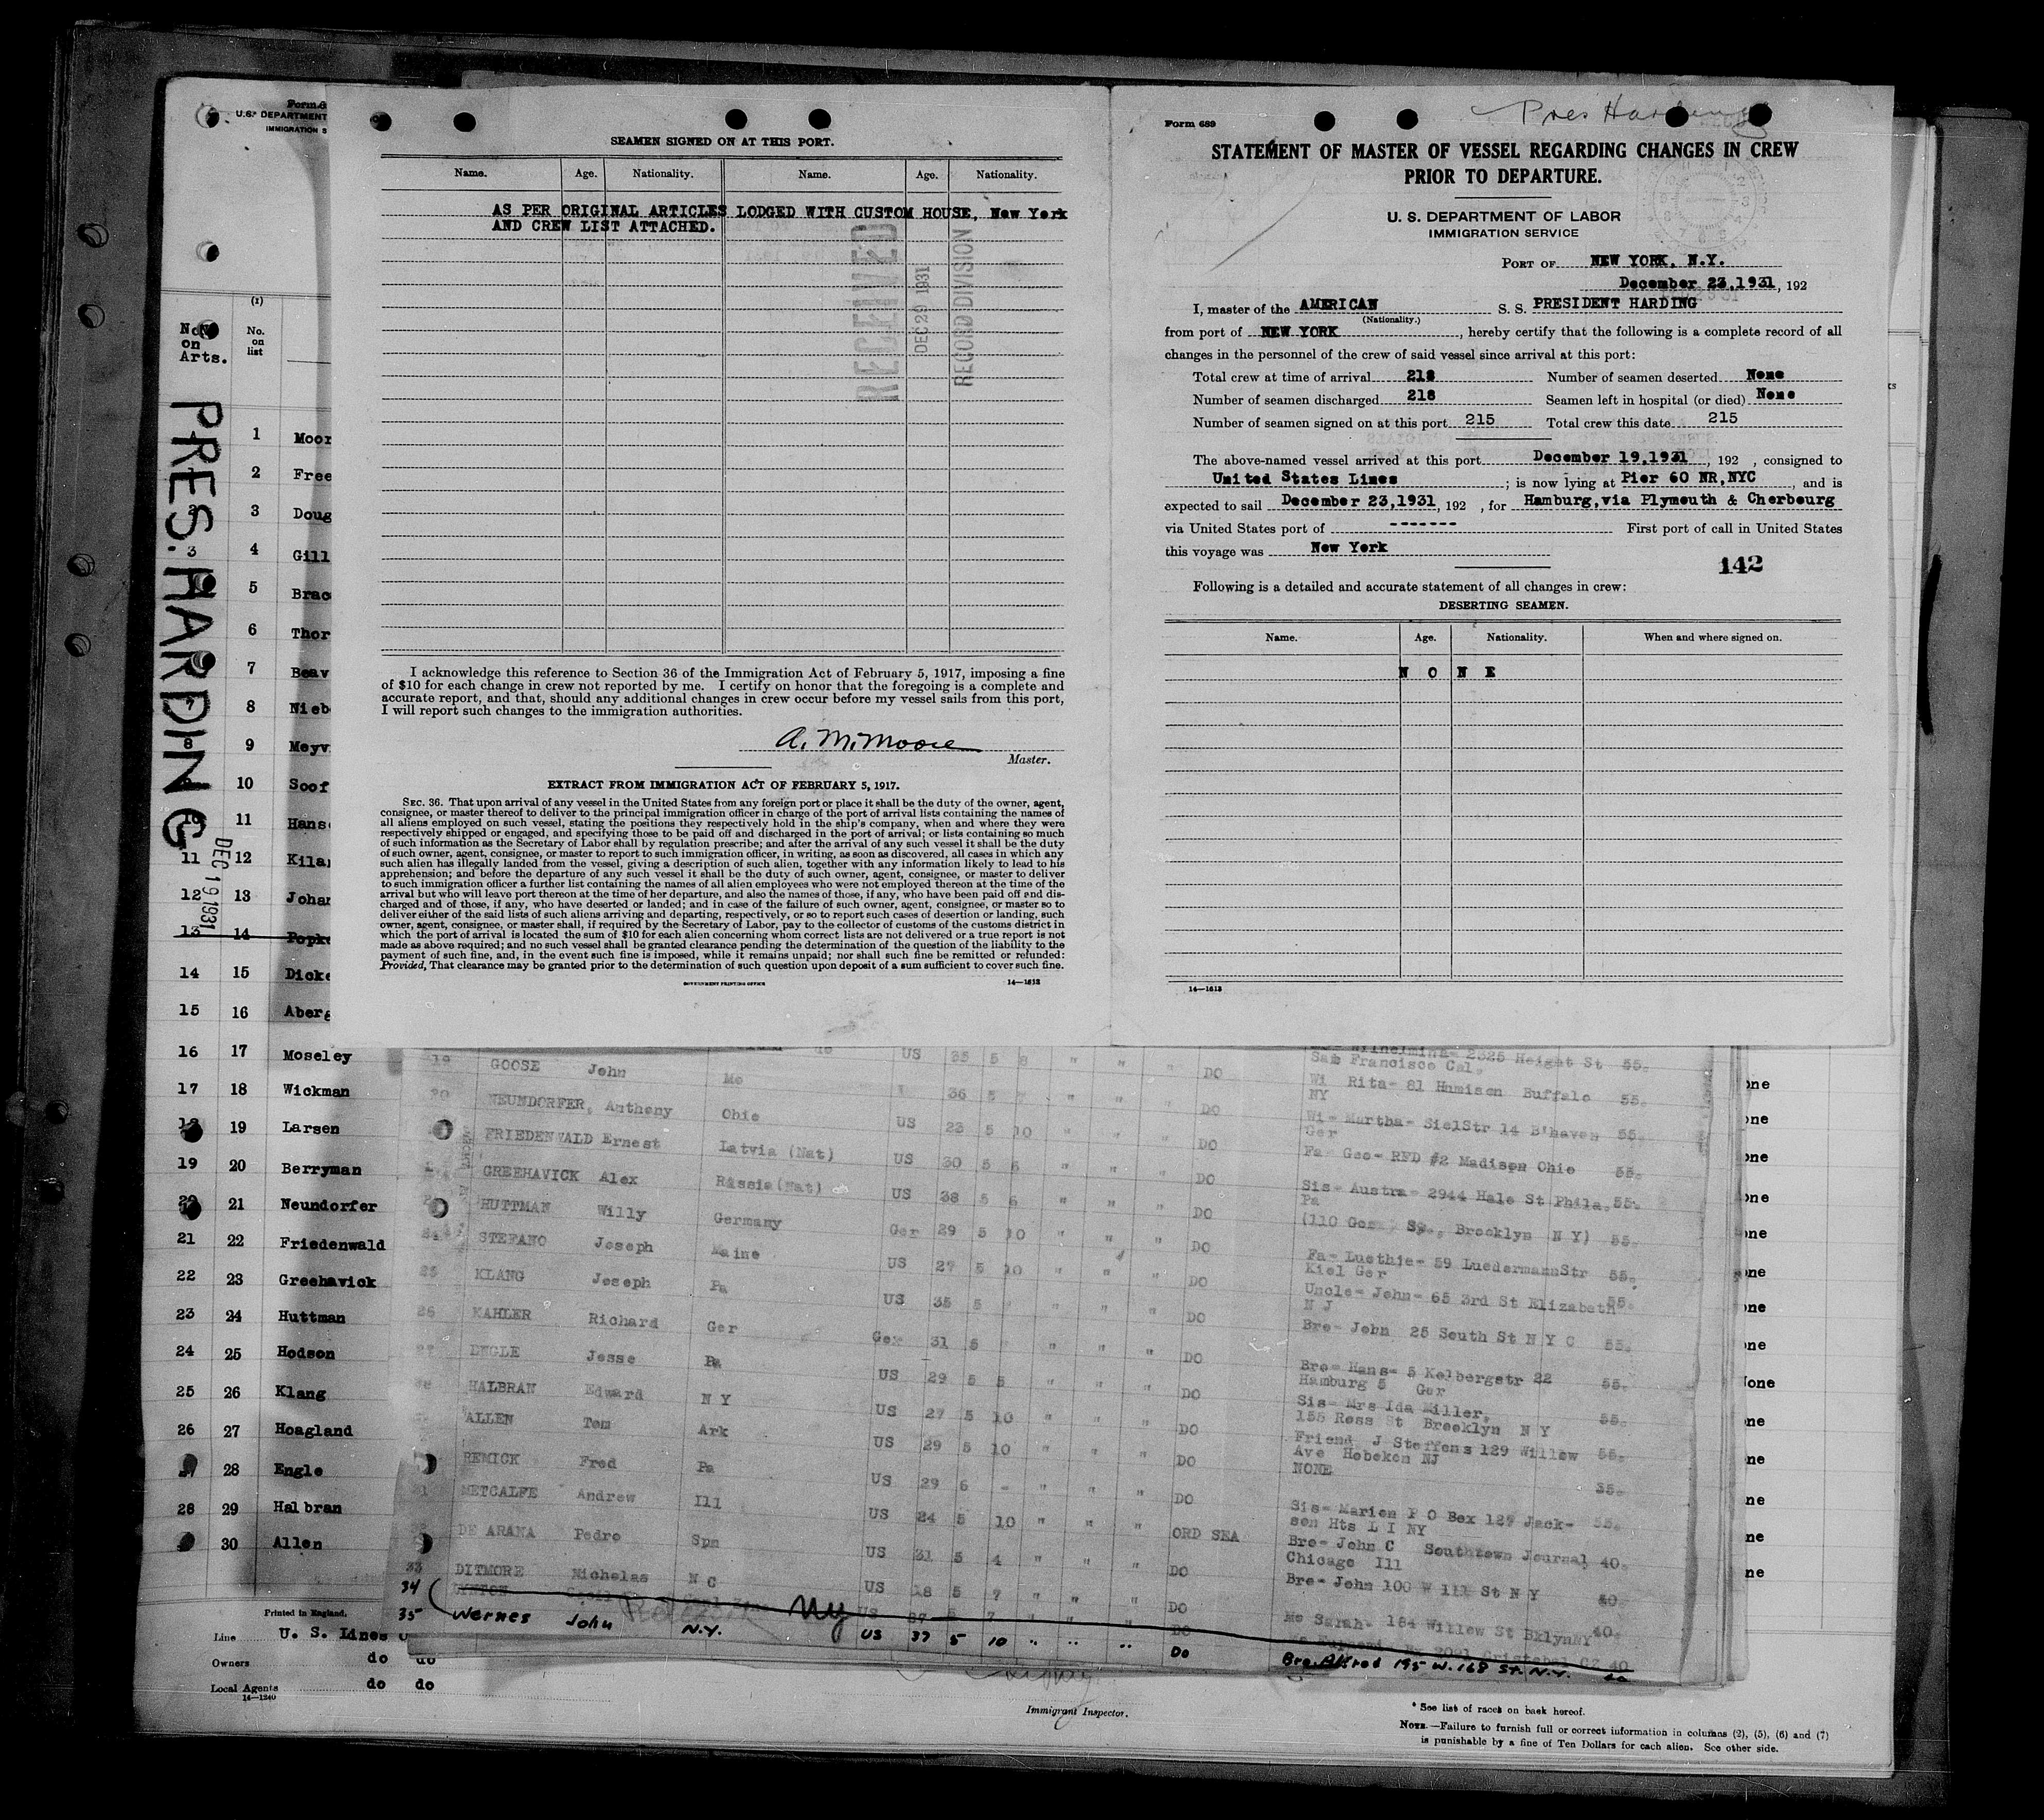 Form 6
U.S. DEPARTMENT
IMMIGRATION S
(1)
No.
on
Arts.
No.
on
list
PRES. HARDING
DEC 19 1931
1 Moor
2 Free
3 Doug
3 4 Gill
5 Brac
6 Thor
7 Beav
7 8 Nieb
8 9 Meyv
9 10 Soof
10 11 Hans
11 12 Kilar
12 13 Johan
13 14 Popke
14 15 Dicke
15 16 Aberg
16 17 Moseley
17 18 Wickman
18 19 Larsen
19 20 Berryman
20 21 Neundorfer
21 22 Friedenwald
22 23 Greehavick
23 24 Huttman
24 25 Hodson
25 26 Klang
26 27 Hoagland
27 28 Engle
28 29 Halbran
30 Allen
Printed in England.
Line U. S. Lines
Owners do do
Local Agents do do
14—1240
SEAMEN SIGNED ON AT THIS PORT.
Name. Age. Nationality. Name. Age. Nationality.
AS PER ORIGINAL ARTICLES LODGED WITH CUSTOM HOUSE, New York
AND CREW LIST ATTACHED.
RECEIVED
DEC 29 1931
RECORD DIVISION
I acknowledge this reference to Section 36 of the Immigration Act of February 5, 1917, imposing a fine
of $10 for each change in crew not reported by me. I certify on honor that the foregoing is a complete and
accurate report, and that, should any additional changes in crew occur before my vessel sails from this port,
I will report such changes to the immigration authorities.
A. M. Moore
Master.
EXTRACT FROM IMMIGRATION ACT OF FEBRUARY 5, 1917.
SEC. 36. That upon arrival of any vessel in the United States from any foreign port or place it shall be the duty of the owner, agent,
consignee, or master thereof to deliver to the principal immigration officer in charge of the port of arrival lists containing the names of
all aliens employed on such vessel, stating the positions they respectively hold in the ship's company, when and where they were
respectively shipped or engaged, and specifying those to be paid off and discharged in the port of arrival; or lists containing so much
of such information as the Secretary of Labor shall by regulation prescribe; and after the arrival of any such vessel it shall be the duty
of such owner, agent, consignee, or master to report to such immigration officer, in writing, as soon as discovered, all cases in which any
such alien has illegally landed from the vessel, giving a description of such alien, together with any information likely to lead to his
apprehension; and before the departure of any such vessel it shall be the duty of such owner, agent, consignee, or master to deliver
to such immigration officer a further list containing the names of all alien employees who were not employed thereon at the time of the
arrival but who will leave port thereon at the time of her departure, and also the names of those, if any, who have been paid off and dis-
charged and of those, if any, who have deserted or landed; and in case of the failure of such owner, agent, consignee, or master so to
deliver either of the said lists of such aliens arriving and departing, respectively, or so to report such cases of desertion or landing, such
owner, agent, consignee, or master shall, if required by the Secretary of Labor, pay to the collector of customs of the customs district in
which the port of arrival is located the sum of $10 for each alien concerning whom correct lists are not delivered or a true report is not
made as above required; and no such vessel shall be granted clearance pending the determination of the question of the liability to the
payment of such fine, and, in the event such fine is imposed, while it remains unpaid; nor shall such fine be remitted or refunded:
Provided, That clearance may be granted prior to the determination of such question upon deposit of a sum sufficient to cover such fine.
GOVERNMENT PRINTING OFFICE 14—1613
Pres Harding
Form 689
STATEMENT OF MASTER OF VESSEL REGARDING CHANGES IN CREW
PRIOR TO DEPARTURE.
U. S. DEPARTMENT OF LABOR
IMMIGRATION SERVICE
PORT OF NEW YORK, N.Y.
December 23,1931, 192
I, master of the AMERICAN S. S. PRESIDENT HARDING
(Nationality.)
from port of NEW YORK, hereby certify that the following is a complete record of all
changes in the personnel of the crew of said vessel since arrival at this port:
Total crew at time of arrival 218 Number of seamen deserted None
Number of seamen discharged 218 Seamen left in hospital (or died) None
Number of seamen signed on at this port 215 Total crew this date 215
The above-named vessel arrived at this port December 19,1931, 192 , consigned to
United States Lines ; is now lying at Pier 60 NR,NYC , and is
expected to sail December 23,1931, 192 , for Hamburg,via Plymouth & Cherbourg
via United States port of ------- First port of call in United States
this voyage was New York
142
Following is a detailed and accurate statement of all changes in crew:
DESERTING SEAMEN.
Name. Age. Nationality. When and where signed on.
N O N E
14—1613
19 GOOSE John Mo US 35 5 8 " " " DO Wilhelmina- 2325 Height St 55.
San Francisco Cal.
20 NEUNDORFER, Anthony Ohio 36 5 7 " " " DO Wi Rita- 81 Hamison Buffalo 55.
NY
FRIEDENWALD Ernest Latvia (Nat) US 23 5 10 " " " DO Wi- Martha- SielStr 14 B'haven 55.
Ger
GREEHAVICK Alex Russia(Nat) US 30 5 6 " " " DO Fa- Geo- RFD #2 Madison Ohio 55.
HUTTMAN Willy Germany US 38 5 6 " " " DO Sis- Austra- 2944 Hale St Phila. 55.
Pa
STEFANO Joseph Maine Ger 29 5 10 " " " DO (110 St., Brooklyn N Y) 55.
25 KLANG Joseph Pa US 27 5 10 " " " DO Fa- Luethje- 59 LuedermannStr 55.
Kiel Ger
26 KAHLER Richard Ger US 35 5 " " " DO Uncle- John- 65 3rd St Elizabeth 55.
N J
27 ENGLE Jesse Pa Ger 31 5 " " " DO Bro- John 25 South St N Y C 55.
HALBRAN Edward N Y US 29 5 5 " " " DO Bro- Hans- 5 Kolbergstr 22 55.
Hamburg 5 Ger
ALLEN Tom Ark US 27 5 10 " " " DO Sis- Mrs Ida Miller, 55.
155 Ross St Brooklyn N Y
REMICK Fred Pa US 29 5 10 " " " DO Friend J Steffens 129 Willow 55.
Ave Hoboken NJ
METCALFE Andrew Ill US 29 6 - " " " DO NONE 35.
DE ARANA Pedro Spn US 24 5 10 " " " ORD SEA Sis- Marion P O Box 127 Jack- 55.
son Hts L I NY
33 DITMORE Nicholas N C US 31 5 4 " " " DO Bro- John C Southtown Journal, 40.
Chicago Ill
34 US 18 5 7 " " " DO Bro- John 100 W 111 St N Y 40.
NY US 37 5 7 " " " DO Mo Sarah- 184 Willow St BklynNY 40.
Cristobal CZ 40
35 Wernes John N.Y. US 37 5 10 " " " Do Bro. Alfred 195 W. 168 St. N.Y. 40
Immigrant Inspector.
* See list of races on back hereof.
NOTE.—Failure to furnish full or correct information in columns (2), (5), (6) and (7)
is punishable by a fine of Ten Dollars for each alien. See other side.